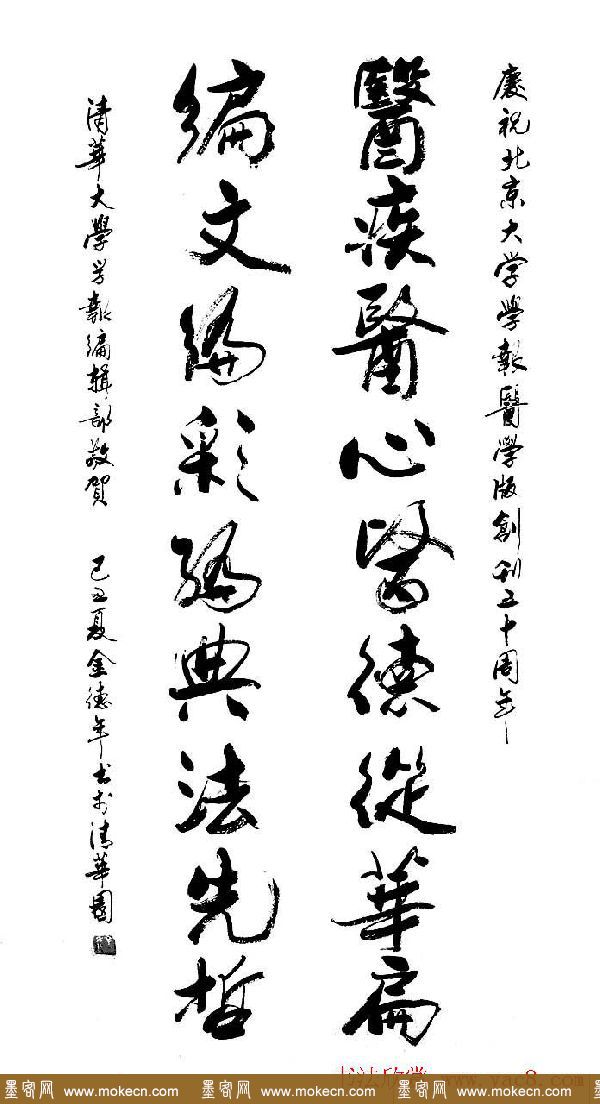 慶祝北京大学學報醫學版創刊五十周年
醫疾醫心醫德從華扁
編文編彩編典法先哲
清華大學学報編輯部敬賀 己丑夏金德年书於清華園
书法欣赏 www.yac8.com
墨客网 www.mokecn.com 墨客网 www.mokecn.com 墨客网 www.mokecn.com